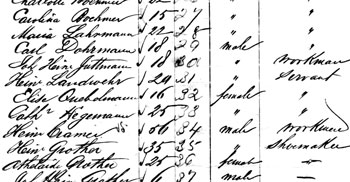 Carolina Boehmer 15 27 "
Maria Lahrmann 22 28 "
Carl Dohrmann 18 29 male "
Joh. Hein. Juttmann 18 30 " workman
Hein. Landwehr 29 31 " servant
Elise 16 32 female "
Cath. Hegemann 25 33 " "
Hein. Cramer 56 34 male workman
Hein. Grother 35 35 " Shoemaker
Grother 25 36 female —
Hein. Grother 6 37 male —